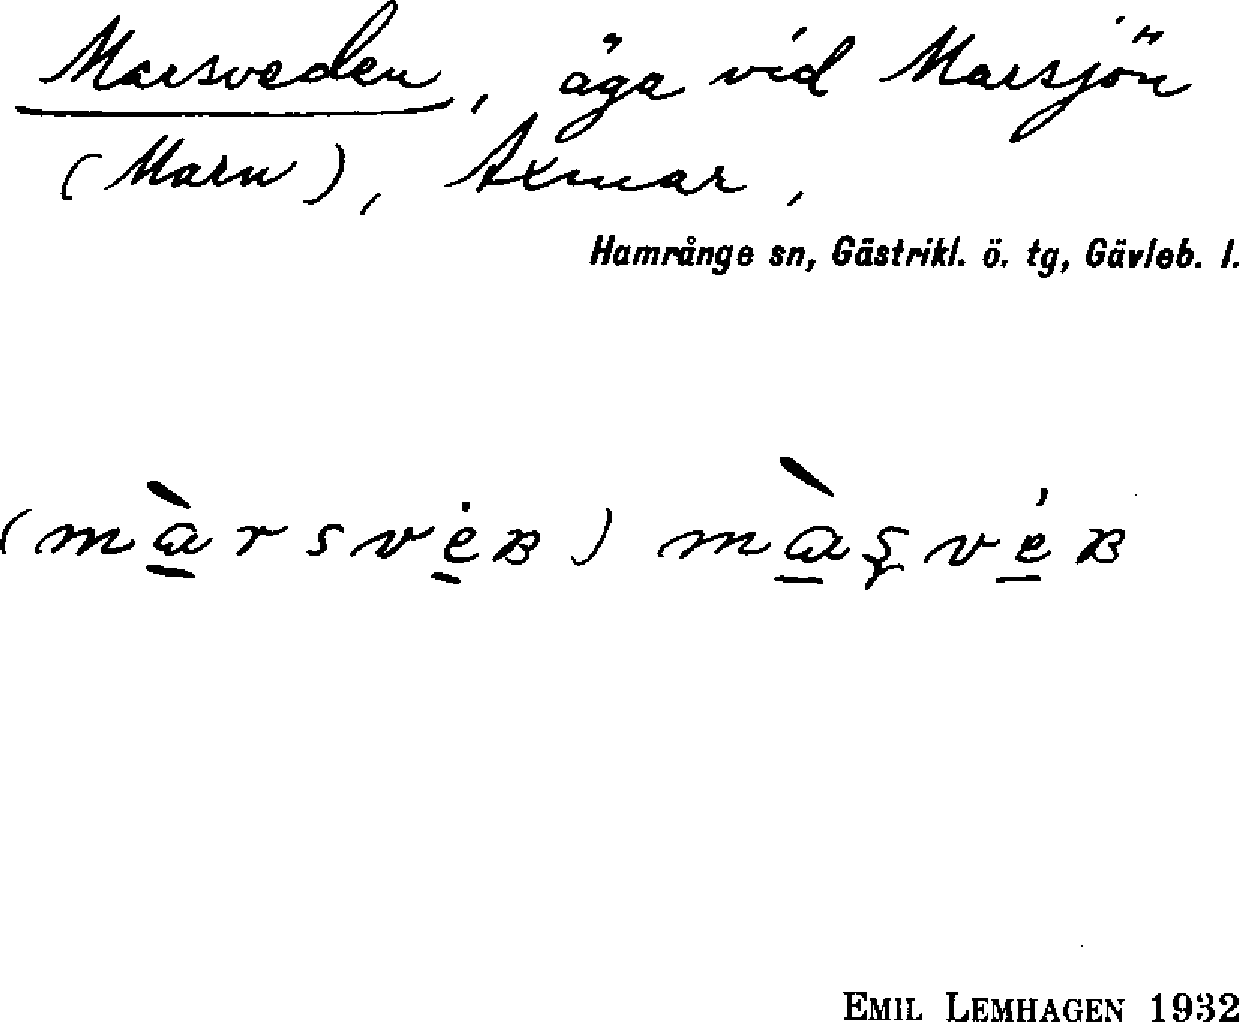 Marsveden, äga vid Marsjön
(Marn), Axmar,
Hamrånge sn, Gästrikl. ö. tg, Gävleb. l.
(màrsvèʙ) màʂvéʙ
EMIL LEMHAGEN 1932